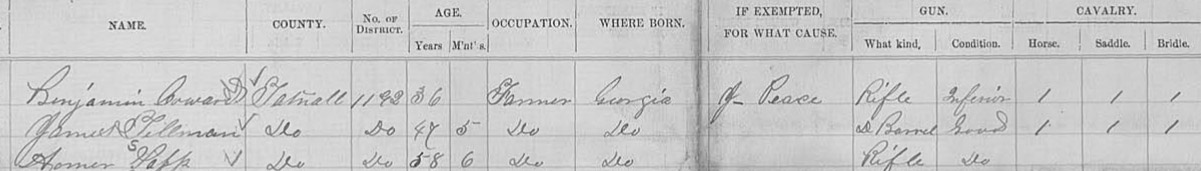 NAME. COUNTY. No. of District. AGE. Years M'nt's. OCCUPATION. WHERE BORN. IF EXEMPTED, FOR WHAT CAUSE. GUN. What kind, Condition. CAVALRY. Horse. Saddle. Bridle.
Benjamin Tatnall 1192 36 Farmer Georgia J Peace Rifle Inferior 1 1 1
James Tillman Do Do 47 5 Do Do D Barrel Good 1 1 1
Homer Do Do 58 6 Do Do Rifle Do